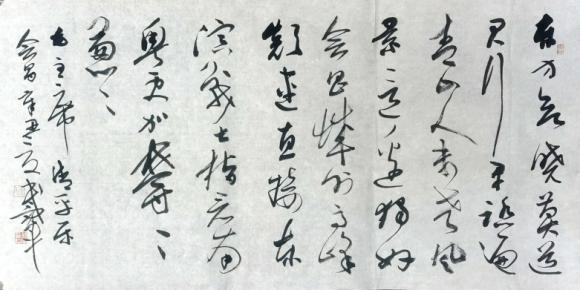 东方欲晓莫道
君行早踏遍
青山人未老风
景这边独好
会昌城外高峰
颠连直接东
溟战士指看南
粤更加郁々
葱々
毛主席清平乐
会昌辛丑夏